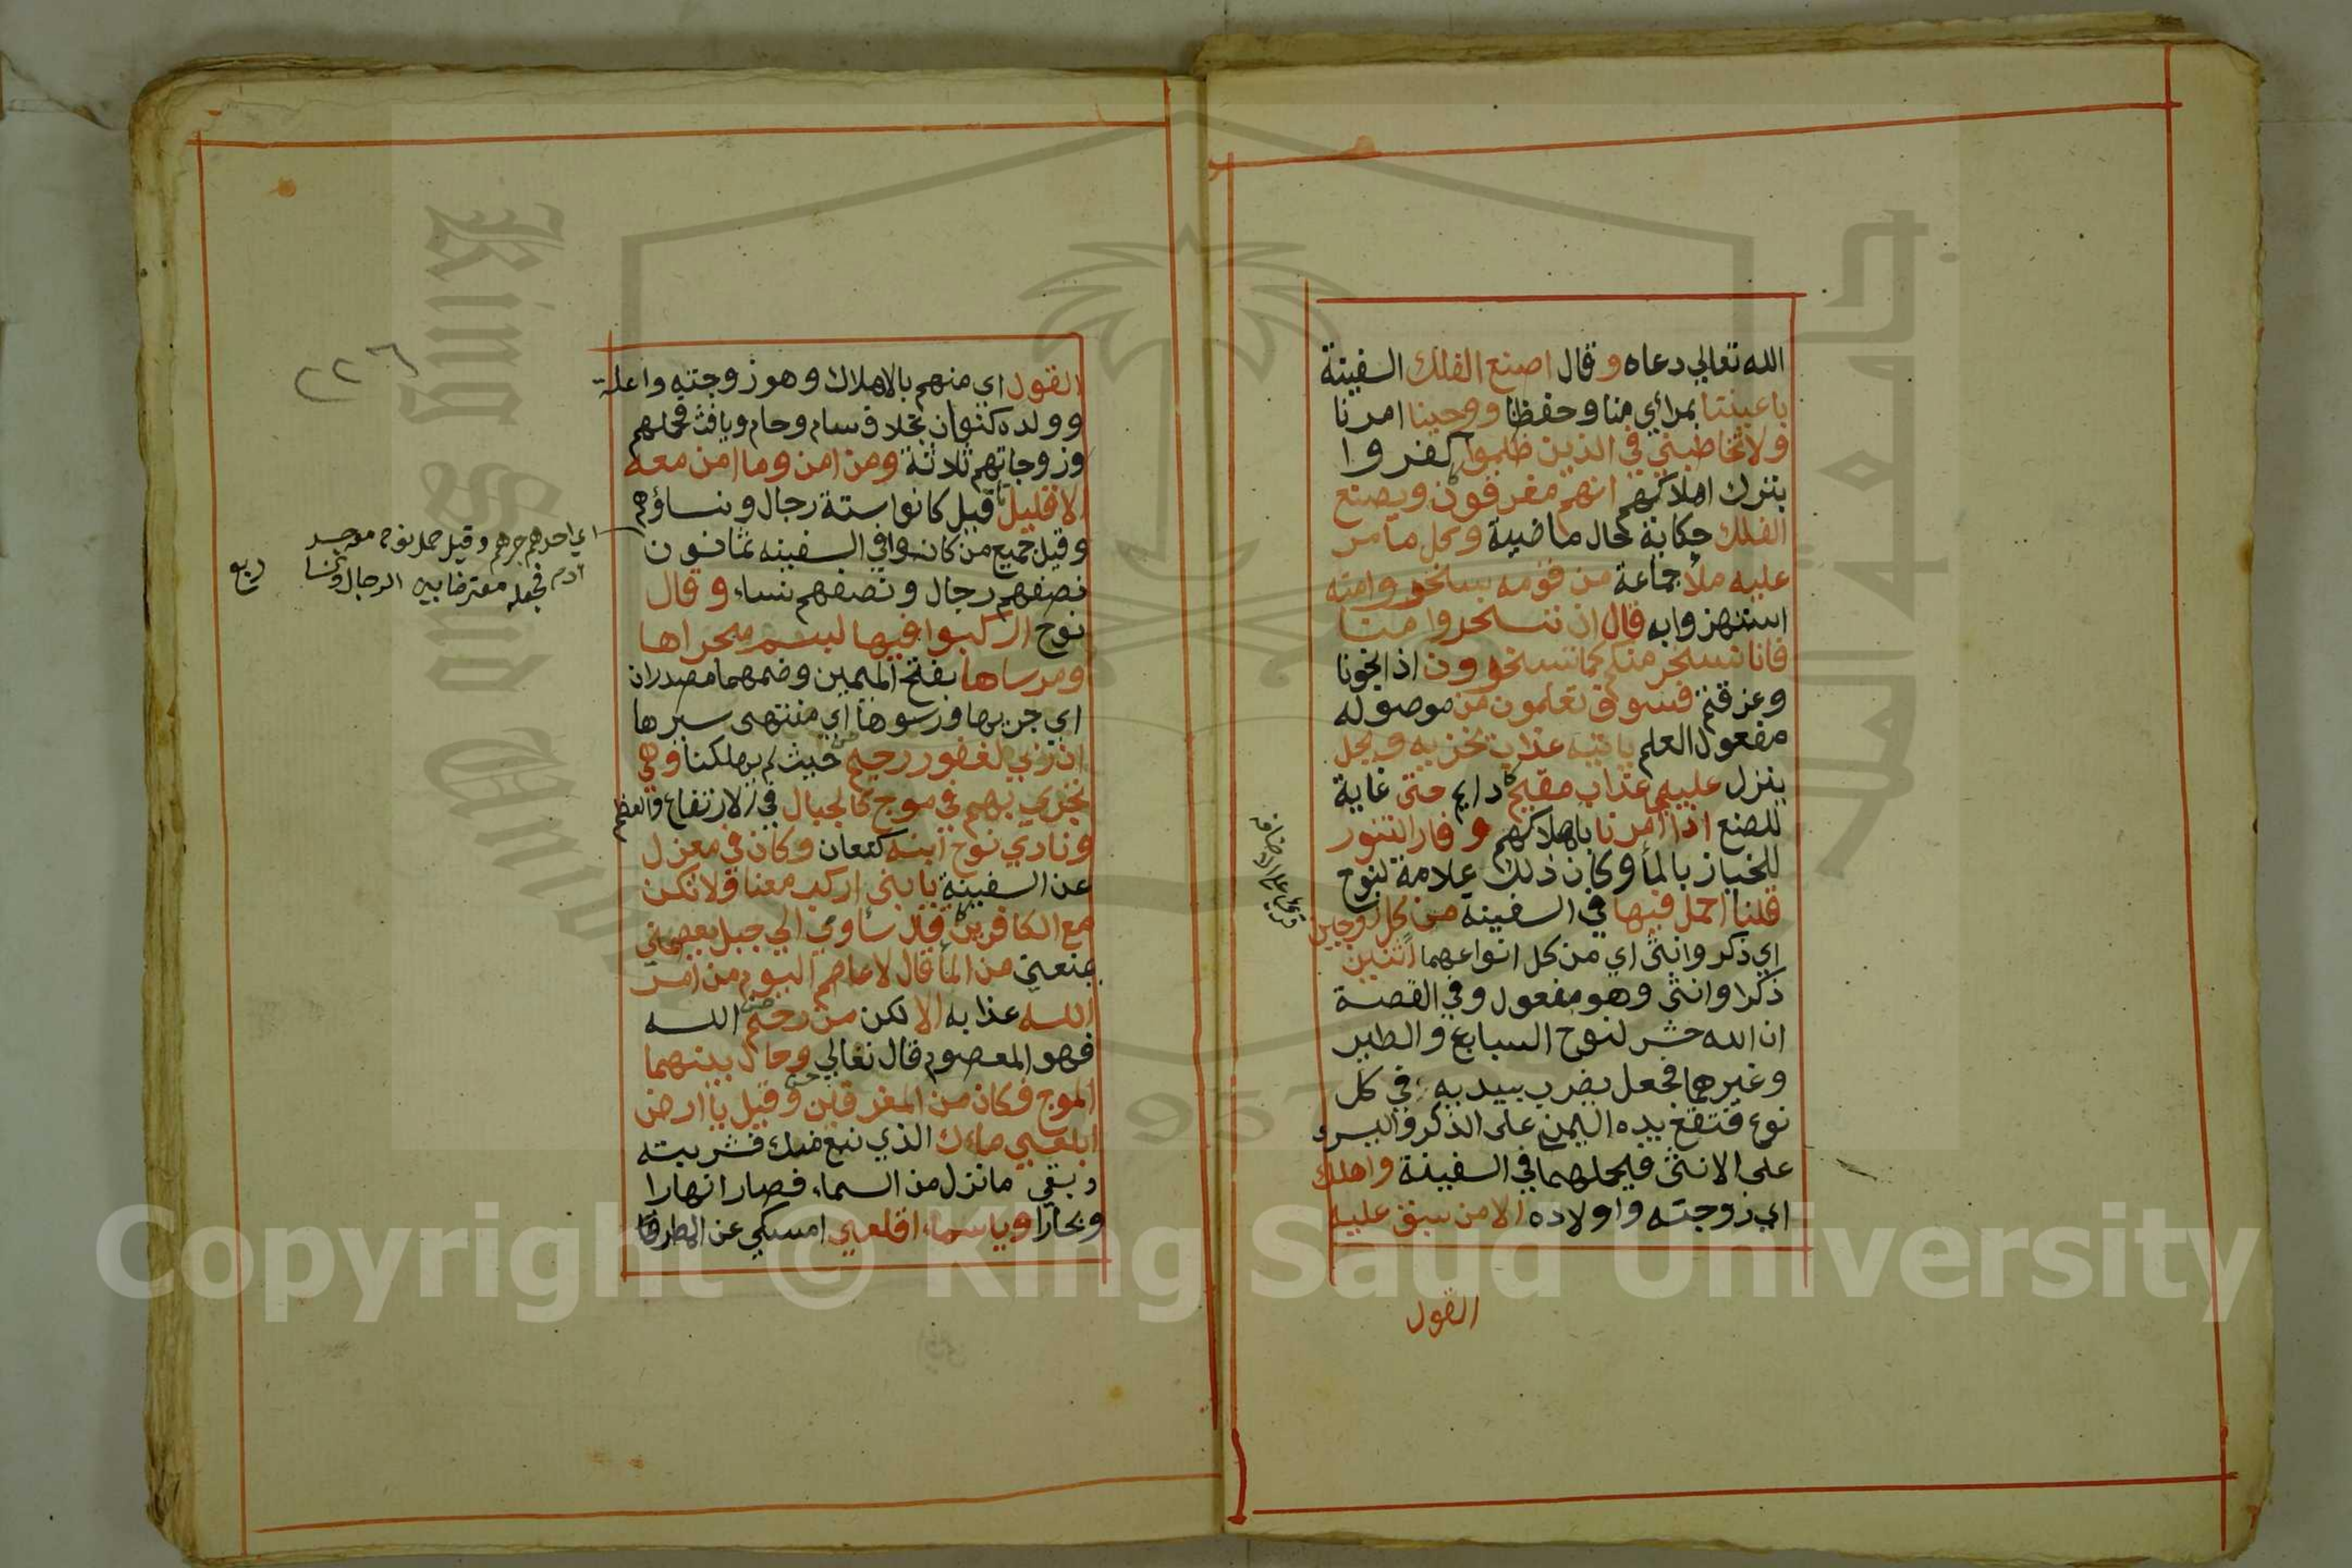 الله تعالي دعاه وقال اصنع الفلك السفينة
باعيننا بمرأي منا وحفظنا ووحينا امرنا
ولا تخاطبني في الذين ظلموا كفروا
بترك اهلاكهم انهم مغرقون ويصنع
الفلك حكاية لحال ماضية وكل ما مر
عليه ملأ جماعة من قومه سخروا منه
استهزوا به قال ان تسخروا منا
فانا نسخر منكم كما تسخرون اذا نجونا
وغرقتم فسوف تعلمون من موصوله
مفعول العلم ياتيه عذاب يخزيه ويحل
ينزل عليه عذاب مقيم دايم حتى غاية
للصنع اذا امرنا باهلاكهم وفار التنور
للخباز بالمأ وكان ذلك علامة لنوح
قلنا احمل فيها في السفينة من كل زوجين
اي ذكر وانثى اي من كل انواعهما اثنين
ذكرا وانثى وهو مفعول وفي القصة
ان الله حشر لنوح السباع والطير
وغيرهما فجعل يضرب بيديه في كل
نوع فتقع يده اليمن على الذكر واليسرى
على الانثى فيحملهما في السفينة واهلك
اي زوجته واولاده الا من سبق عليه
القول
القول اي منهم بالاهلاك وهو زوجته واعلة
وولده كنعان بخلاف سام وحام ويافث فحملهم
وزوجاتهم ثلاثة ومن امن وما امن معه
الا قليل قيل كانوا ستة رجال ونساؤهم
وقيل جميع من كانوا في السفينه ثمانون
نصفهم رجال ونصفهم نساء وقال
نوح اركبوا فيها لبسم مجراها
ومرساها بفتح الميمين وضمهما مصدران
اي جريها ورسوها اي منتهى سيرها
ان ربي لغفور رحيم حيث لم يهلكنا وهي
تجري بهم في موج كالجبال في الارتفاع والعظم
ونادي نوح ابنه كنعان وكان في معزل
عن السفينة يا بني اركب معنا ولا تكن
مع الكافرين قال سأوي الي جبل يعصمني
يمنعني من المأ قال لا عاصم اليوم من امر
الله عذابه الا لكن من رحم الله
فهو المعصوم قال تعالي وحال بينهما
الموج فكان من المغرقين وقيل يا ارض
ابلعي ماءك الذي نبع منك فشربته
وبقي ما نزل من السماء فصار انهارا
وبحارا ويا سماء اقلعي امسكي عن المطر
٢٢٦
اي احدهم جرهم وقيل حمل نوح معه جسد
آدم فجعله معترضا بين الرجال والنسا
ربع
Copyright © King Saud University
King Saud University
1957